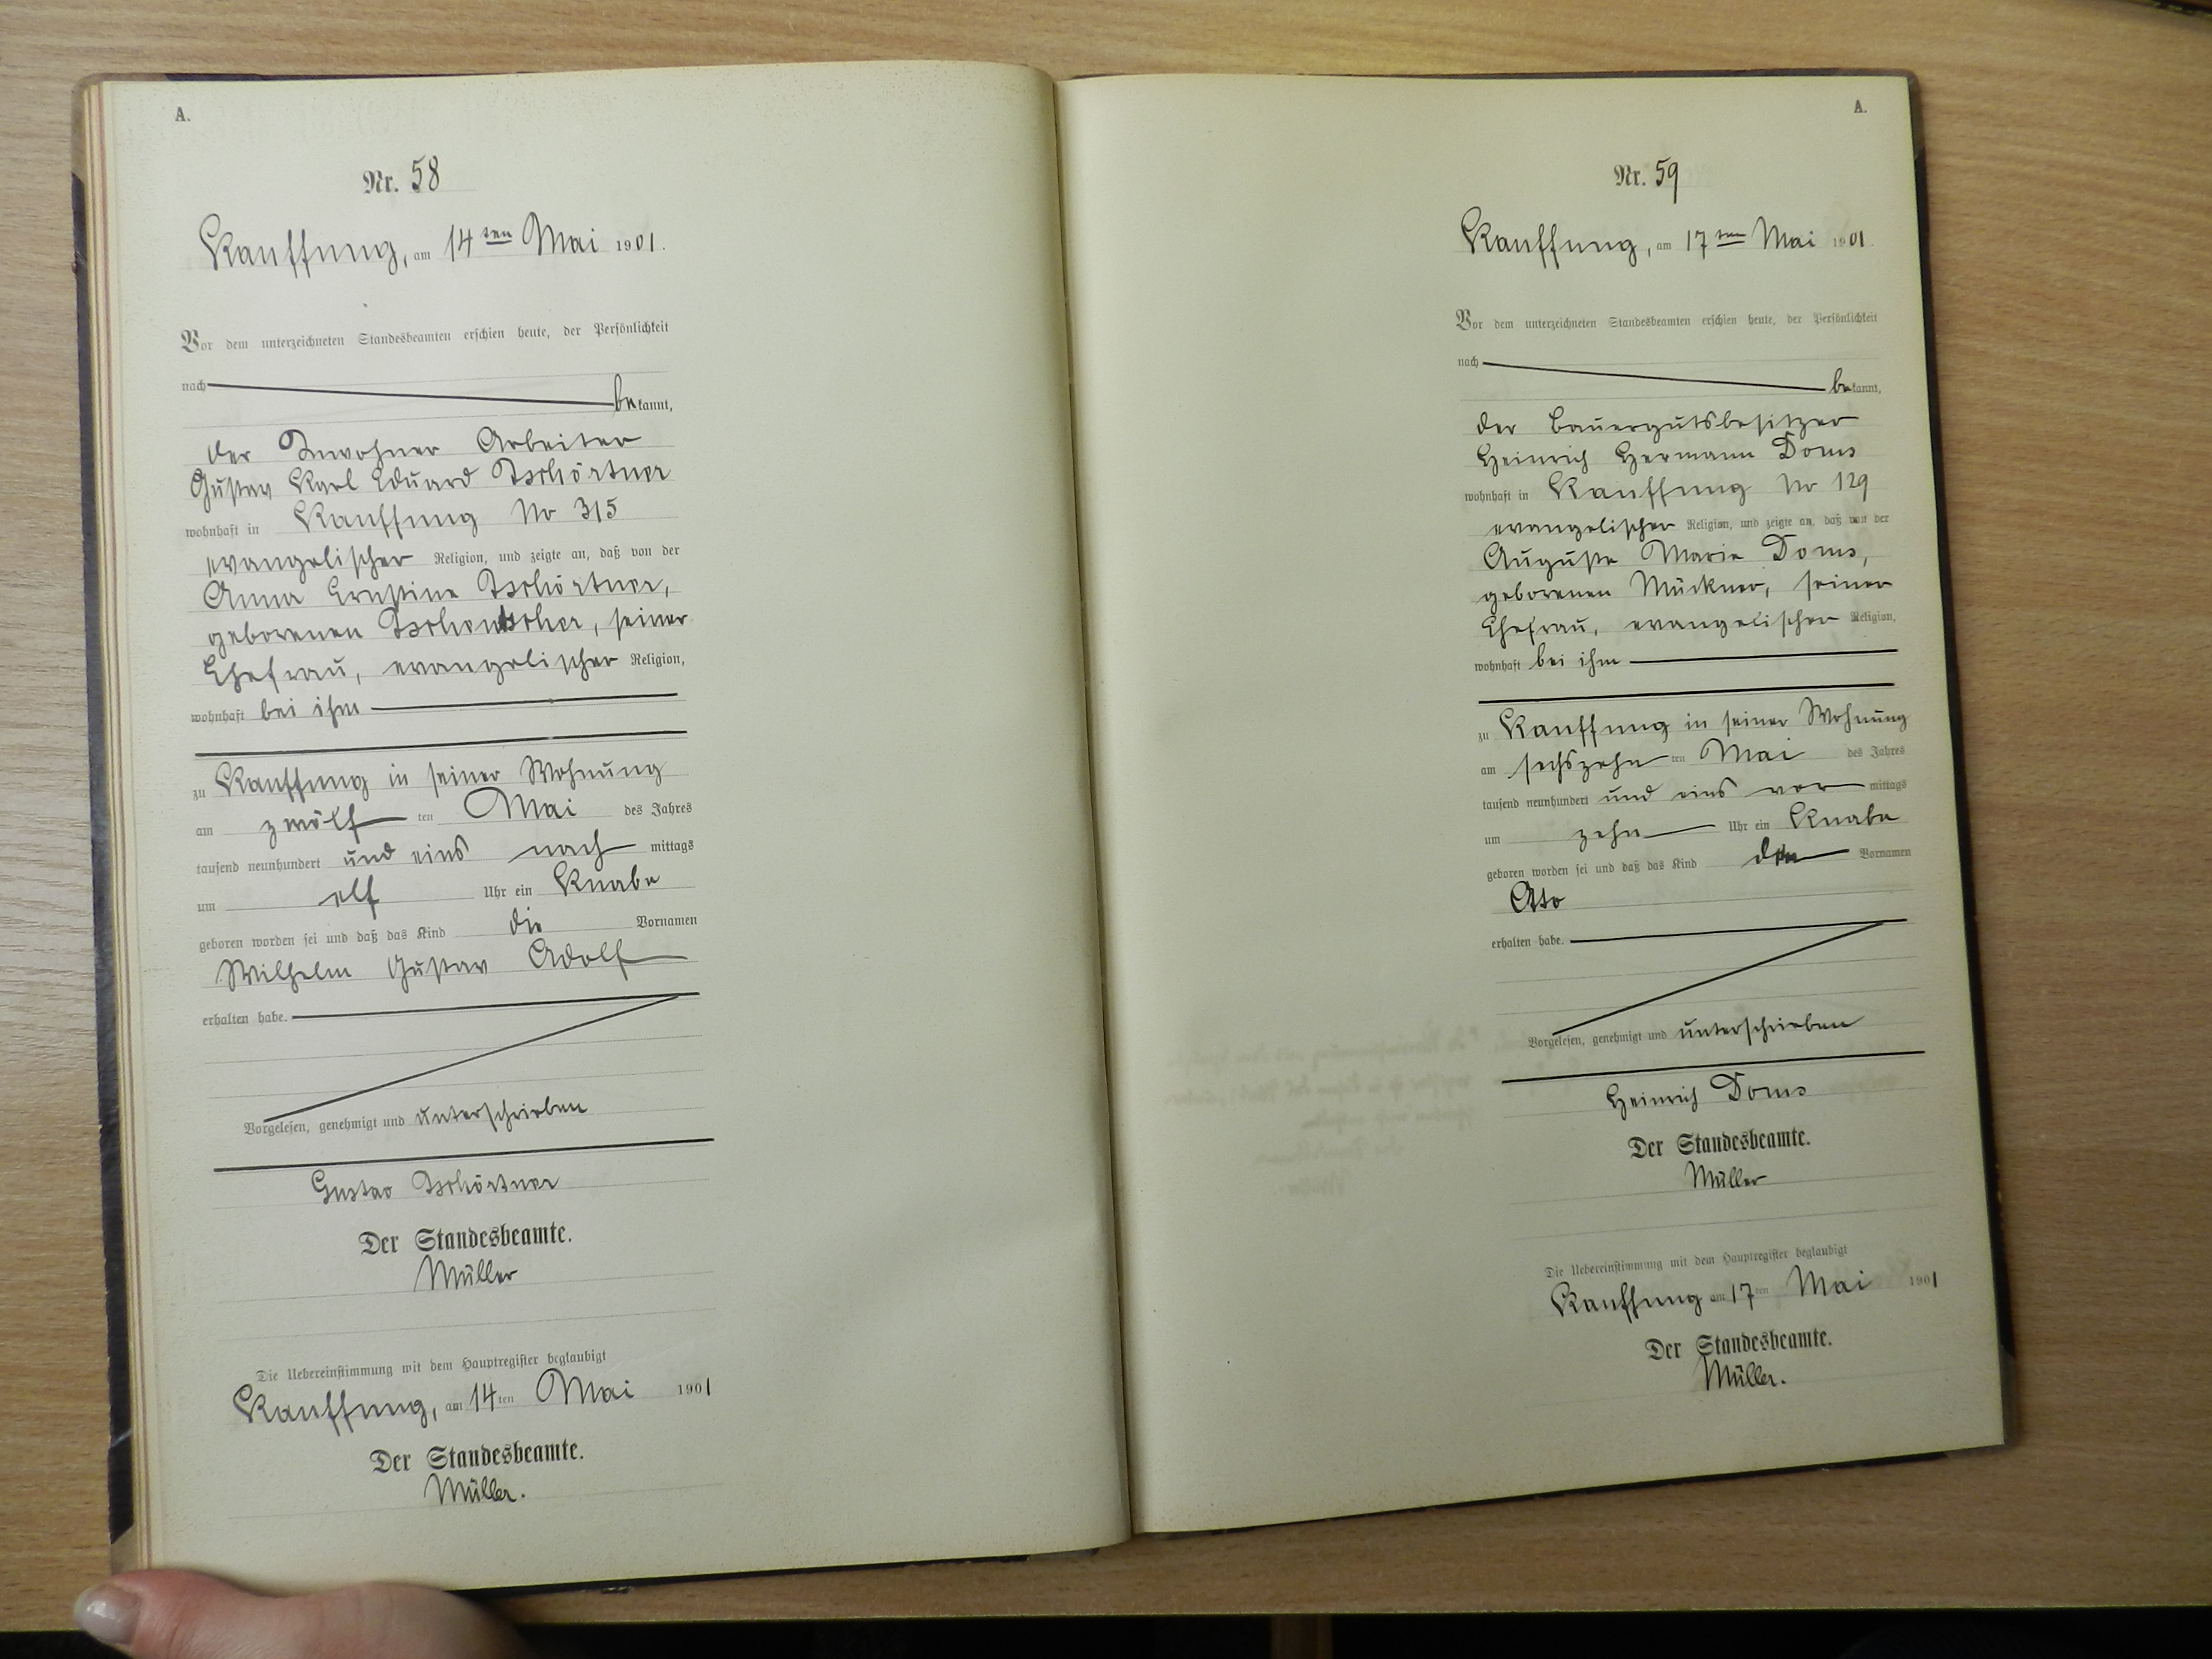 A.
Nr. 58
Kauffung, am 14ten Mai 1901.
Vor dem unterzeichneten Standesbeamten erschien heute, der Persönlichkeit
nach
bekannt,
der Inwohner Arbeiter
Gustav Karl Eduard Tschörtner
wohnhaft in Kauffung No 315
evangelischer Religion, und zeigte an, daß von der
Anna Ernstine Tschörtner,
geborenen Tschentscher, seiner
Ehefrau, evangelischer Religion,
wohnhaft bei ihm
zu Kauffung in seiner Wohnung
am zwölf ten Mai des Jahres
tausend neunhundert und eins nach mittags
um elf Uhr ein Knabe
geboren worden sei und daß das Kind die Vornamen
Wilhelm Gustav Adolf
erhalten habe.
Vorgelesen, genehmigt und unterschrieben
Gustav Tschörtner
Der Standesbeamte.
Müller
Die Uebereinstimmung mit dem Hauptregister beglaubigt
Kauffung, am 14ten Mai 1901
Der Standesbeamte.
Müller.
A.
Nr. 59
Kauffung, am 17ten Mai 1901.
Vor dem unterzeichneten Standesbeamten erschien heute, der Persönlichkeit
nach
bekannt,
der Bauergutsbesitzer
Heinrich Hermann Doms
wohnhaft in Kauffung No 129
evangelischer Religion, und zeigte an, daß von der
Auguste Marie Doms,
geborenen Mückner, seiner
Ehefrau, evangelischer Religion,
wohnhaft bei ihm
zu Kauffung in seiner Wohnung
am sechszehn ten Mai des Jahres
tausend neunhundert und eins vor mittags
um zehn Uhr ein Knabe
geboren worden sei und daß das Kind den Vornamen
erhalten habe.
Vorgelesen, genehmigt und unterschrieben
Heinrich Doms
Der Standesbeamte.
Müller
Die Uebereinstimmung mit dem Hauptregister beglaubigt
Kauffung am 17ten Mai 1901
Der Standesbeamte.
Müller.